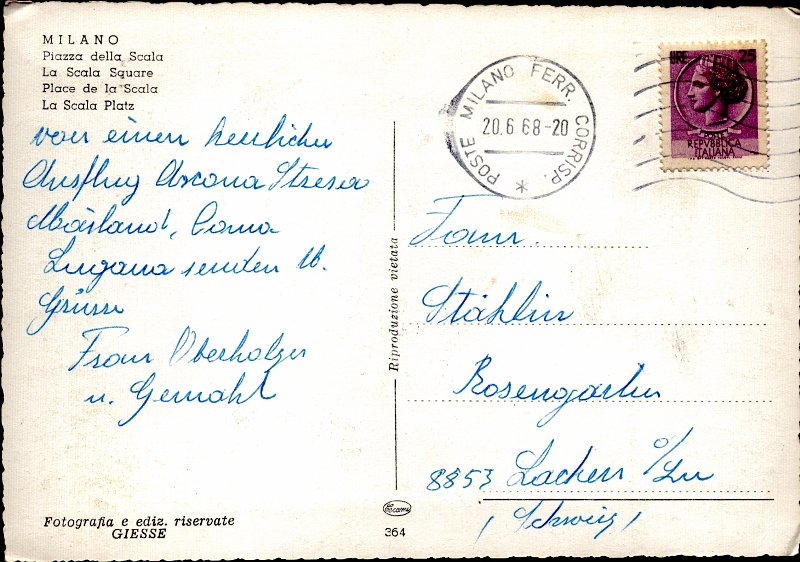 MILANO
Piazza della Scala
La Scala Square
Place de la Scala
La Scala Platz
von einem herrlichen
Ausflug Arcona Stresa
Mailand, Como
Lugano senden lb.
Grüsse
Frau Oberholzer
u. Gemahl
Fotografia e ediz. riservate
GIESSE
Riproduzione vietata
Cecami
364
POSTE MILANO FERR. CORRISP.
20.6 68-20
LIRE 25
POSTE
REPVBBLICA
ITALIANA
Frau
Stählin
Rosengarten
8853 Lachen
(Schweiz)